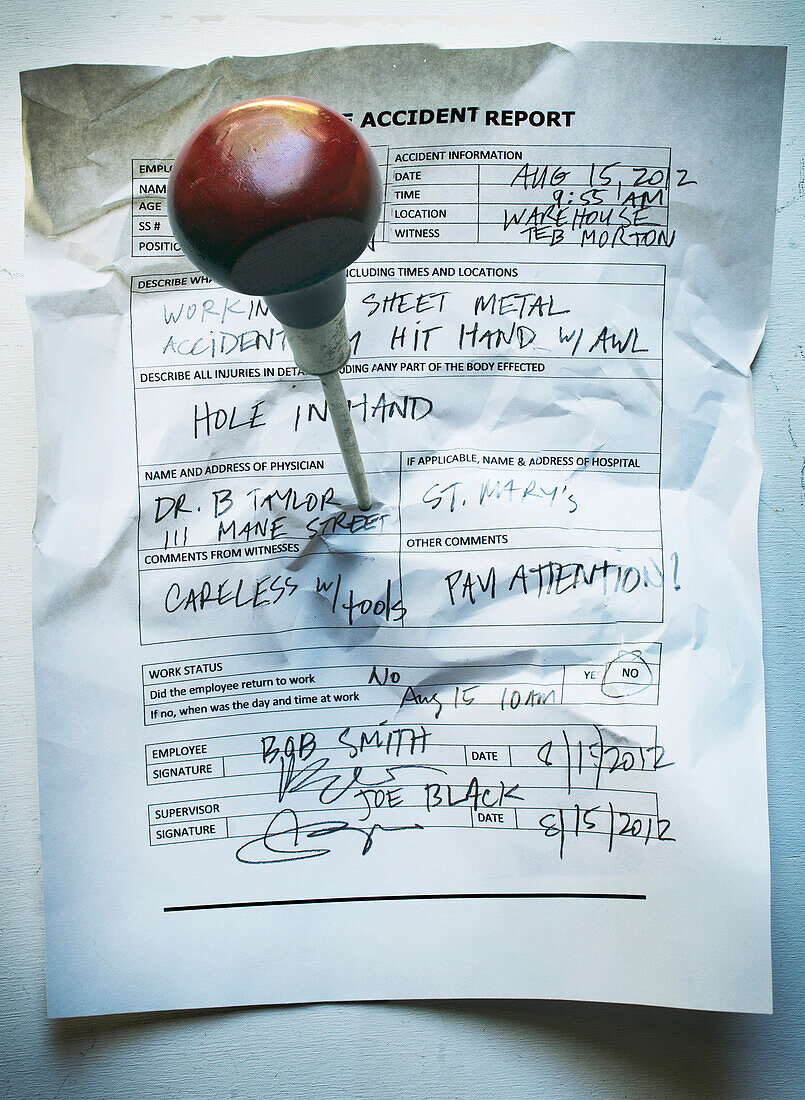 ACCIDENT REPORT
ACCIDENT INFORMATION
NAM
AGE
SS #
POSITIO
DATE AUG 15, 2012
TIME 9:55 AM
LOCATION WAREHOUSE
WITNESS TEB MORTON
DESCRIBE WHA NCLUDING TIMES AND LOCATIONS
WORKIN SHEET METAL
ACCIDENT HIT HAND W/ AWL
DESCRIBE ALL INJURIES IN DETA UDING ANY PART OF THE BODY EFFECTED
HOLE IN HAND
NAME AND ADDRESS OF PHYSICIAN
DR. B TAYLOR
111 MANE STREET
IF APPLICABLE, NAME & ADDRESS OF HOSPITAL
ST. MARY'S
COMMENTS FROM WITNESSES
CARELESS W/ tools
OTHER COMMENTS
PAY ATTENTION!
WORK STATUS
Did the employee return to work No YE NO
If no, when was the day and time at work Aug 15 10AM
EMPLOYEE BOB SMITH
SIGNATURE
DATE 8/15/2012
SUPERVISOR JOE BLACK
SIGNATURE
DATE 8/15/2012